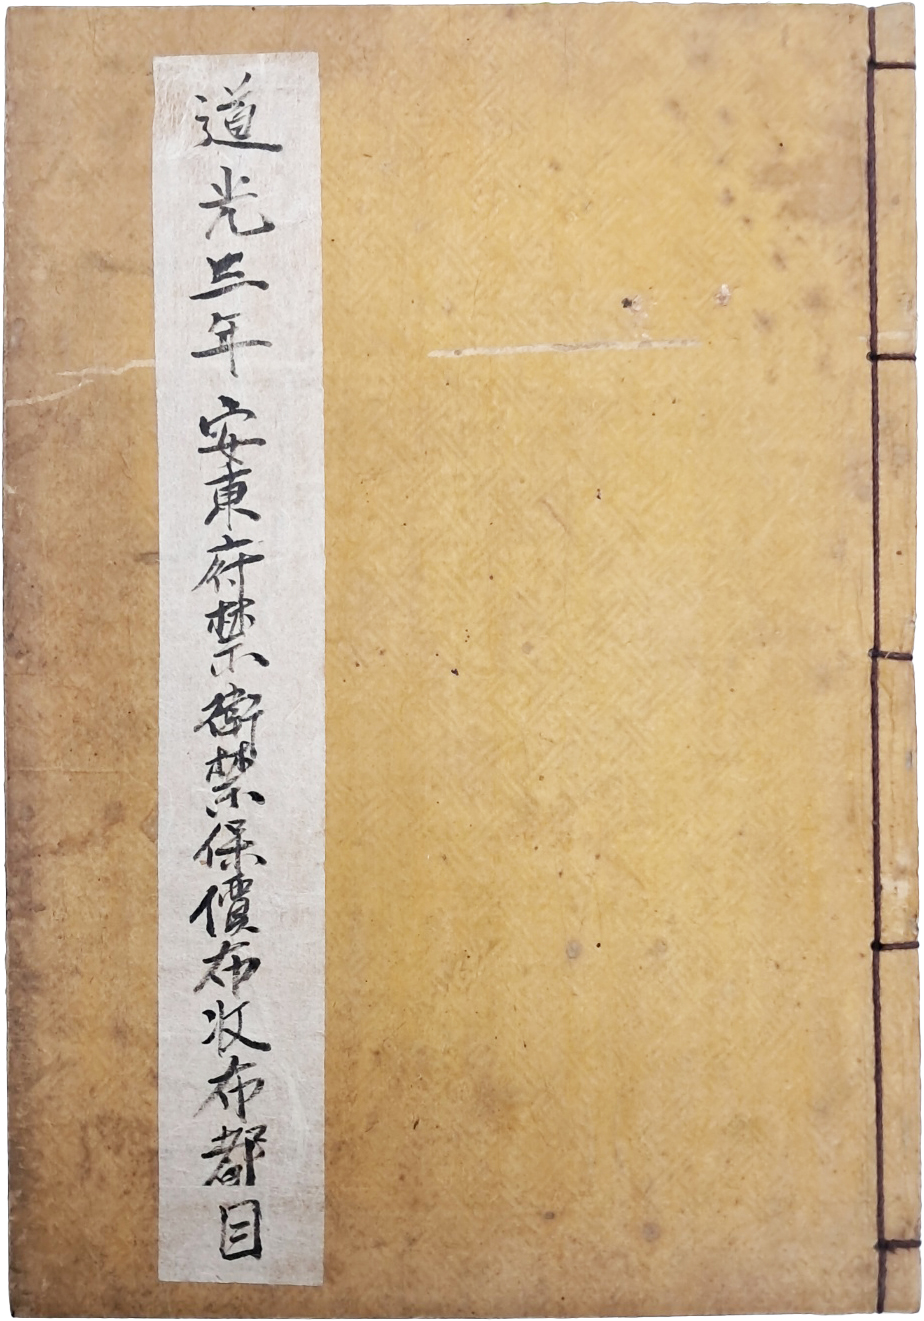 道光三年安東府禁衛禁保價布收布都目